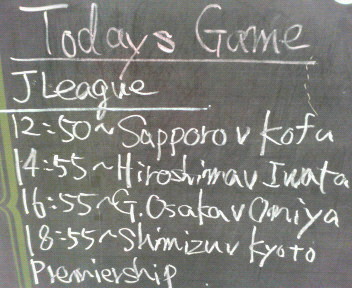 Todays Game
J League
12:50~Sapporo v Kofu
14:55~Hiroshima v Iwata
16:55~G.Osaka v Omiya
18:55~Shimizu v Kyoto
Premiership